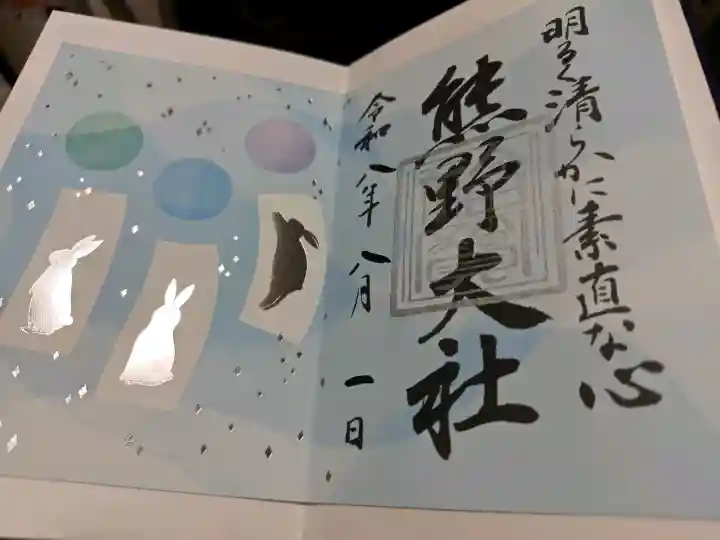 明るく清らかに素直な心
熊野大社
令和八年八月一日